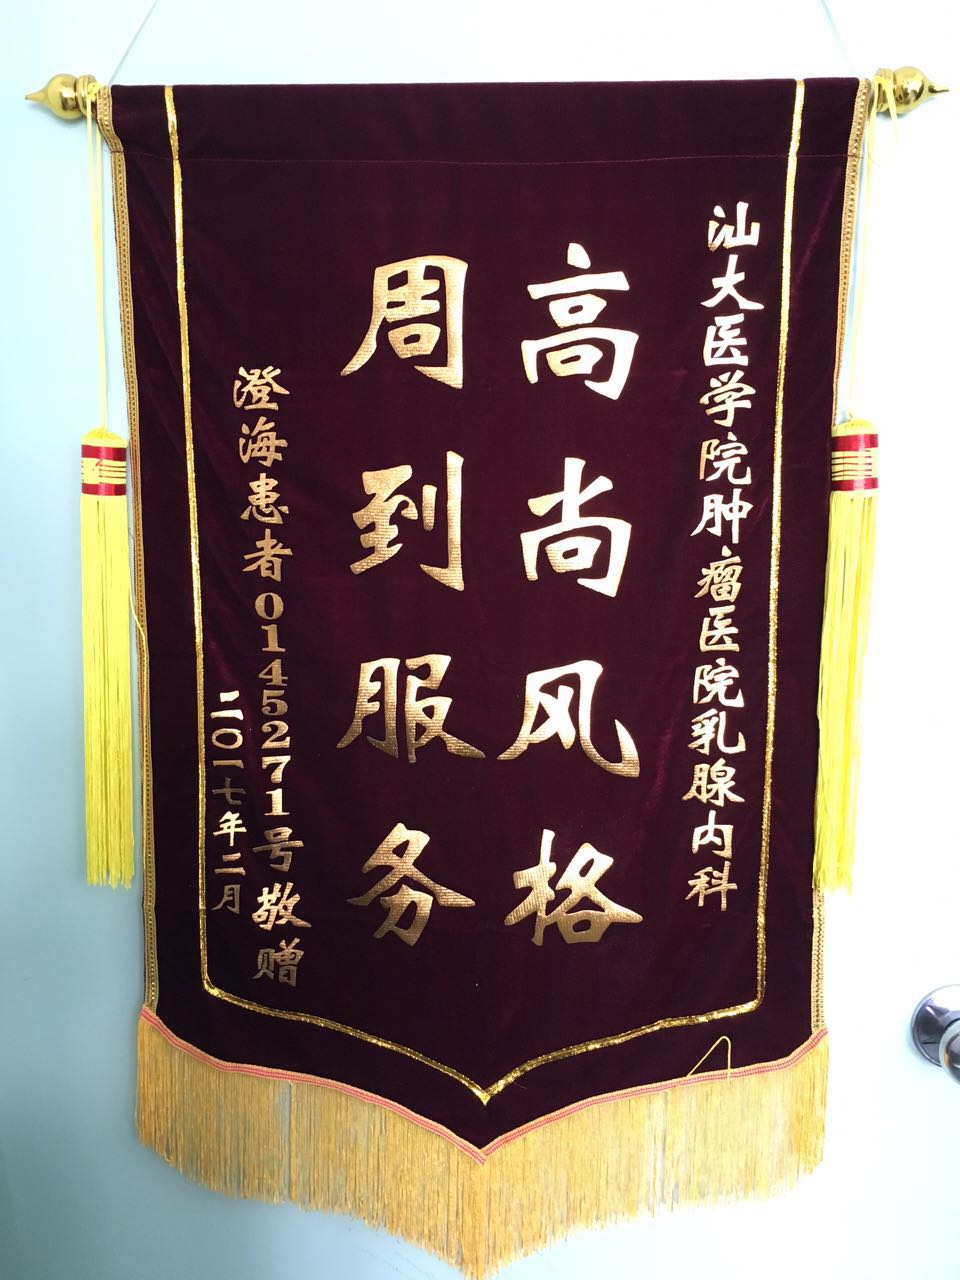 汕大医学院肿瘤医院乳腺内科
高尚风格
周到服务
澄海患者0145271号敬赠
二〇一七年二月